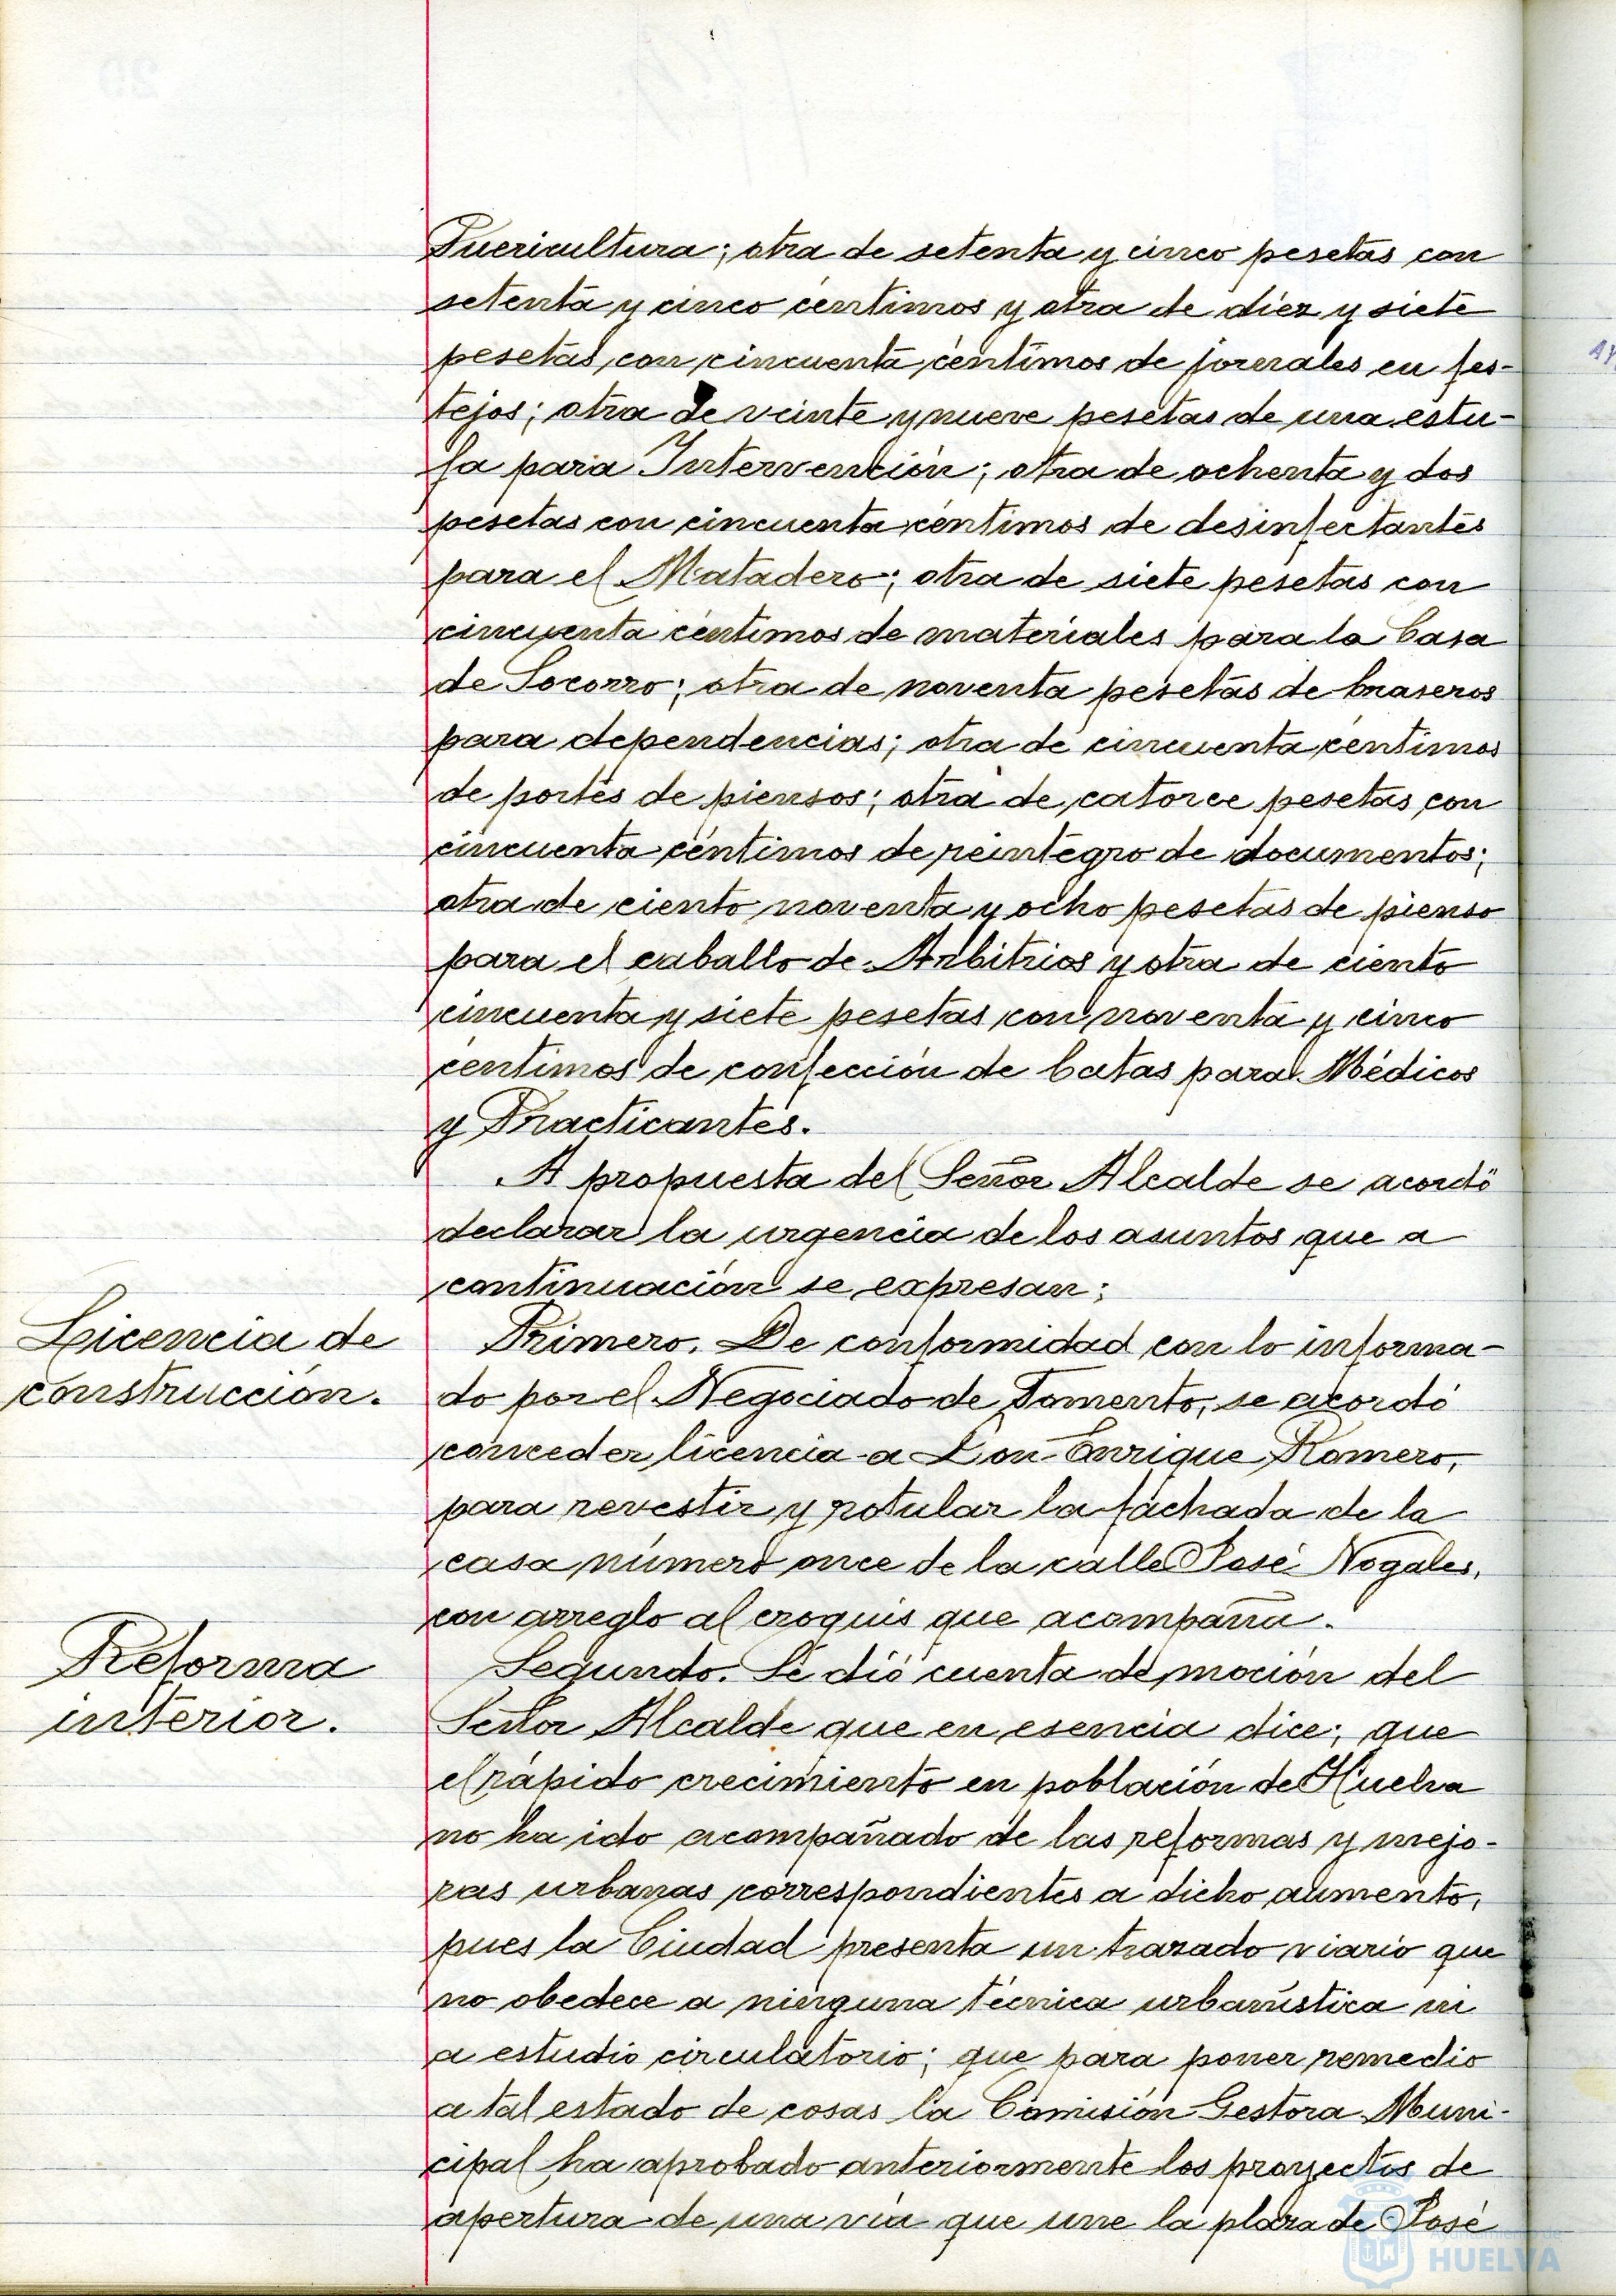 Puericultura; otra de setenta y cinco pesetas con
setenta y cinco céntimos y otra de diez y siete
pesetas con cincuenta céntimos de jornales en fes-
tejos; otra de veinte y nueve pesetas de una estu-
fa para Intervención; otra de ochenta y dos
pesetas con cincuenta céntimos de desinfectantes
para el Matadero; otra de siete pesetas con
cincuenta céntimos de materiales para la Casa
de Socorro; otra de noventa pesetas de braseros
para dependencias; otra de cincuenta céntimos
de portes de piensos; otra de catorce pesetas con
cincuenta céntimos de reintegro de documentos;
otra de ciento noventa y ocho pesetas de pienso
para el caballo de Arbitrios y otra de ciento
cincuenta y siete pesetas con noventa y cinco
céntimos de confección de batas para Médicos
y Practicantes.
A propuesta del Señor Alcalde se acordó
declarar la urgencia de los asuntos que a
continuación se expresan:
Licencia de
construcción.
Primero. De conformidad con lo informa-
do por el Negociado de Fomento, se acordó
conceder licencia a Don Enrique Romero,
para revestir y rotular la fachada de la
casa número once de la calle José Nogales,
con arreglo al croquis que acompaña.
Reforma
interior.
Segundo. Se dió cuenta de moción del
Señor Alcalde que en esencia dice; que
el rápido crecimiento en población de Huelva
no ha ido acompañado de las reformas y mejo-
ras urbanas correspondientes a dicho aumento,
pues la Ciudad presenta un trazado viario que
no obedece a ninguna técnica urbanística ni
a estudio circulatorio; que para poner remedio
a tal estado de cosas la Comisión Gestora Muni-
cipal ha aprobado anteriormente los proyectos de
apertura de una vía que une la plaza de José
HUELVA